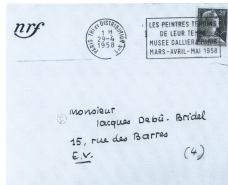 nrf
PARIS TRI ET DISTRIBUTION
1 H
29-4
1958
LES PEINTRES TÉMOINS
DE LEUR TEMPS
MUSEE GALLIERA PARIS
MARS-AVRIL-MAI 1958
Monsieur
Jacques Debû-Bridel
15, rue des Barres
E.V.
(4)